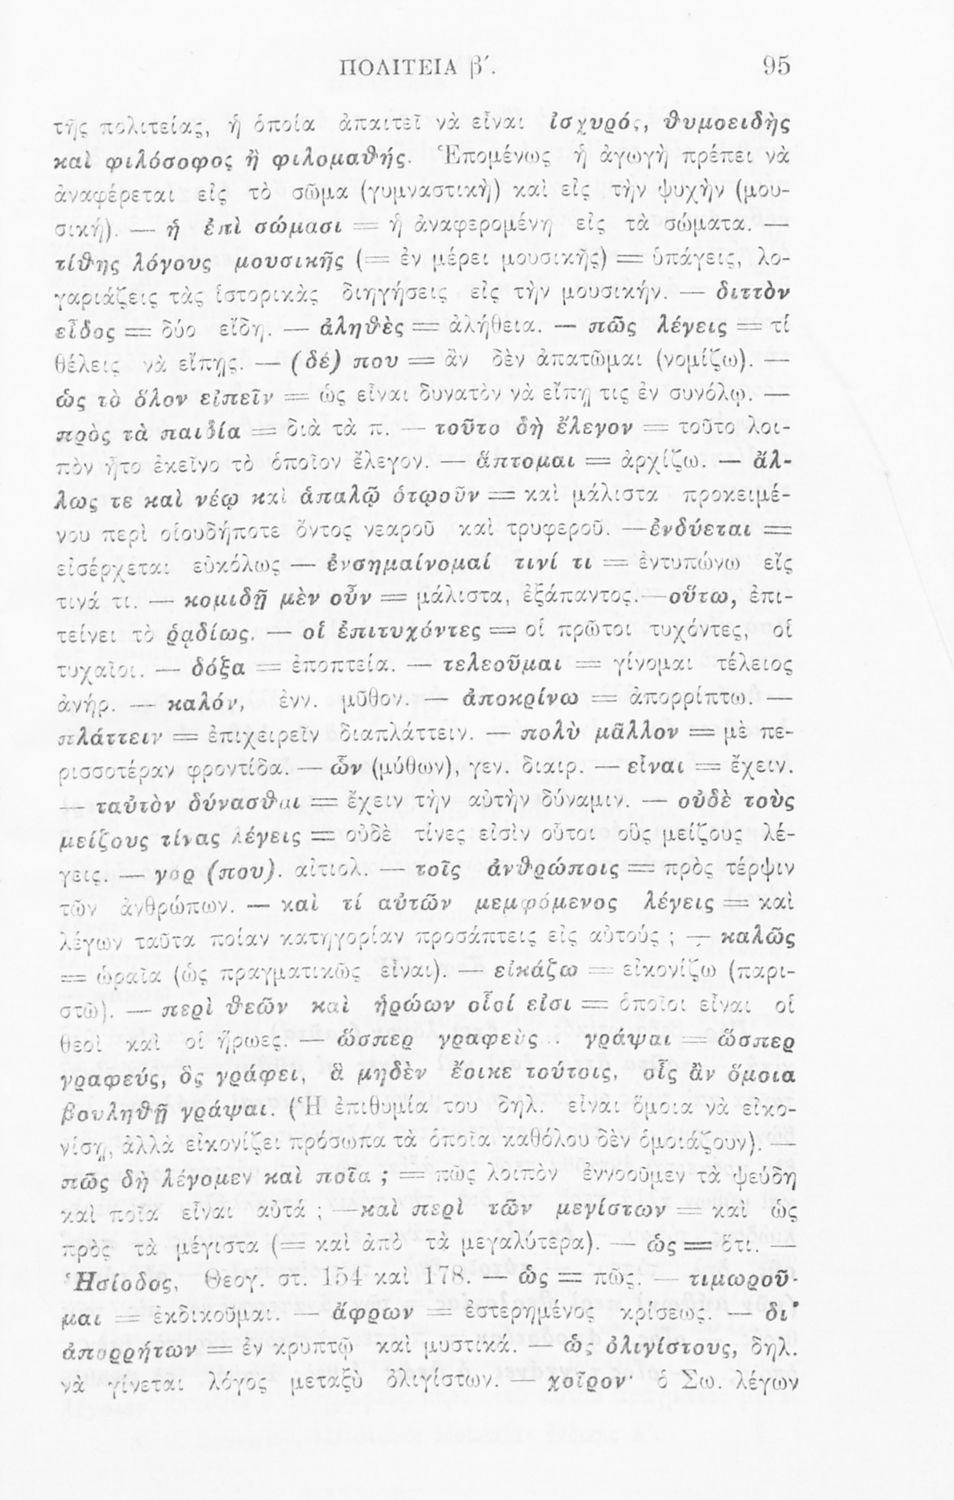 ΠΟΛΙΤΕΙΑ β′. 95
τῆς πολιτείας, ἡ ὁποία ἀπαιτεῖ νὰ εἶναι ἰσχυρός, θυμοειδὴς
καὶ φιλόσοφος ἢ φιλομαθής. Ἑπομένως ἡ ἀγωγὴ πρέπει νὰ
ἀναφέρεται εἰς τὸ σῶμα (γυμναστικὴ) καὶ εἰς τὴν ψυχὴν (μου-
σική). — ἡ ἐπὶ σώμασι = ἡ ἀναφερομένη εἰς τὰ σώματα. —
τίθης λόγους μουσικῆς (= ἐν μέρει μουσικῆς) = ὑπάγεις, λο-
γαριάζεις τὰς ἱστορικὰς διηγήσεις εἰς τὴν μουσικήν. — διττὸν
εἶδος = δύο εἴδη. — ἀληθὲς = ἀλήθεια. — πῶς λέγεις = τί
θέλεις νὰ εἴπῃς. — (δέ) που = ἂν δὲν ἀπατῶμαι (νομίζω). —
ὡς τὸ ὅλον εἰπεῖν = ὡς εἶναι δυνατὸν νὰ εἴπῃ τις ἐν συνόλῳ. —
πρὸς τὰ παιδία = διὰ τὰ π. — τοῦτο δὴ ἔλεγον = τοῦτο λοι-
πὸν ἦτο ἐκεῖνο τὸ ὁποῖον ἔλεγον. — ἅπτομαι = ἀρχίζω. — ἄλ-
λως τε καὶ νέῳ καὶ ἁπαλῷ ὁτῳοῦν = καὶ μάλιστα προκειμέ-
νου περὶ οἱουδήποτε ὄντος νεαροῦ καὶ τρυφεροῦ. — ἐνδύεται =
εἰσέρχεται εὐκόλως — ἐνσημαίνομαί τινί τι = ἐντυπώνω εἴς
τινά τι. — κομιδῇ μὲν οὖν = μάλιστα, ἐξάπαντος. — οὕτω, ἐπι-
τείνει τὸ ῥᾳδίως. — οἱ ἐπιτυχόντες = οἱ πρῶτοι τυχόντες, οἱ
τυχαῖοι. — δόξα = ἐποπτεία. — τελεοῦμαι = γίνομαι τέλειος
ἀνήρ. — καλόν, ἐνν. μῦθον. — ἀποκρίνω = ἀπορρίπτω. —
πλάττειν = ἐπιχειρεῖν διαπλάττειν. — πολὺ μᾶλλον = μὲ πε-
ρισσοτέραν φροντίδα. — ὧν (μύθων), γεν. διαιρ. — εἶναι = ἔχειν.
— ταὐτὸν δύνασθαι = ἔχειν τὴν αὐτὴν δύναμιν. — οὐδὲ τοὺς
μείζους τίνας λέγεις = οὐδὲ τίνες εἰσὶν οὗτοι οὓς μείζους λέ-
γεις. — γὰρ (που). αἰτιολ. — τοῖς ἀνθρώποις = πρὸς τέρψιν
τῶν ἀνθρώπων. — καὶ τί αὐτῶν μεμφόμενος λέγεις = καὶ
λέγων ταῦτα ποίαν κατηγορίαν προσάπτεις εἰς αὐτούς ; — καλῶς
= ὡραῖα (ὡς πραγματικῶς εἶναι). — εἰκάζω = εἰκονίζω (παρι-
στῶ). — περὶ θεῶν καὶ ἡρώων οἷοί εἰσι = ὁποῖοι εἶναι οἱ
θεοὶ καὶ οἱ ἥρωες. — ὥσπερ γραφεὺς .. γράψαι = ὥσπερ
γραφεύς, ὃς γράφει, ἃ μηδὲν ἔοικε τούτοις, οἷς ἂν ὅμοια
βουληθῇ γράψαι. (Ἡ ἐπιθυμία του δηλ. εἶναι ὅμοια νὰ εἰκο-
νίσῃ, ἀλλὰ εἰκονίζει πρόσωπα τὰ ὁποῖα καθόλου δὲν ὁμοιάζουν). —
πῶς δὴ λέγομεν καὶ ποῖα ; = πῶς λοιπὸν ἐννοοῦμεν τὰ ψεύδη
καὶ ποῖα εἶναι αὐτά ; — καὶ περὶ τῶν μεγίστων = καὶ ὡς
πρὸς τὰ μέγιστα (= καὶ ἀπὸ τὰ μεγαλύτερα). — ὡς = ὅτι. —
Ἡσίοδος, Θεογ. στ. 154 καὶ 178. — ὡς = πῶς. — τιμωροῦ-
μαι = ἐκδικοῦμαι. — ἄφρων = ἐστερημένος κρίσεως. — δι'
ἀπορρήτων = ἐν κρυπτῷ καὶ μυστικά. — ὡς ὀλιγίστους, δηλ.
νὰ γίνεται λόγος μεταξὺ ὀλιγίστων. — χοῖρον· ὁ Σω. λέγων